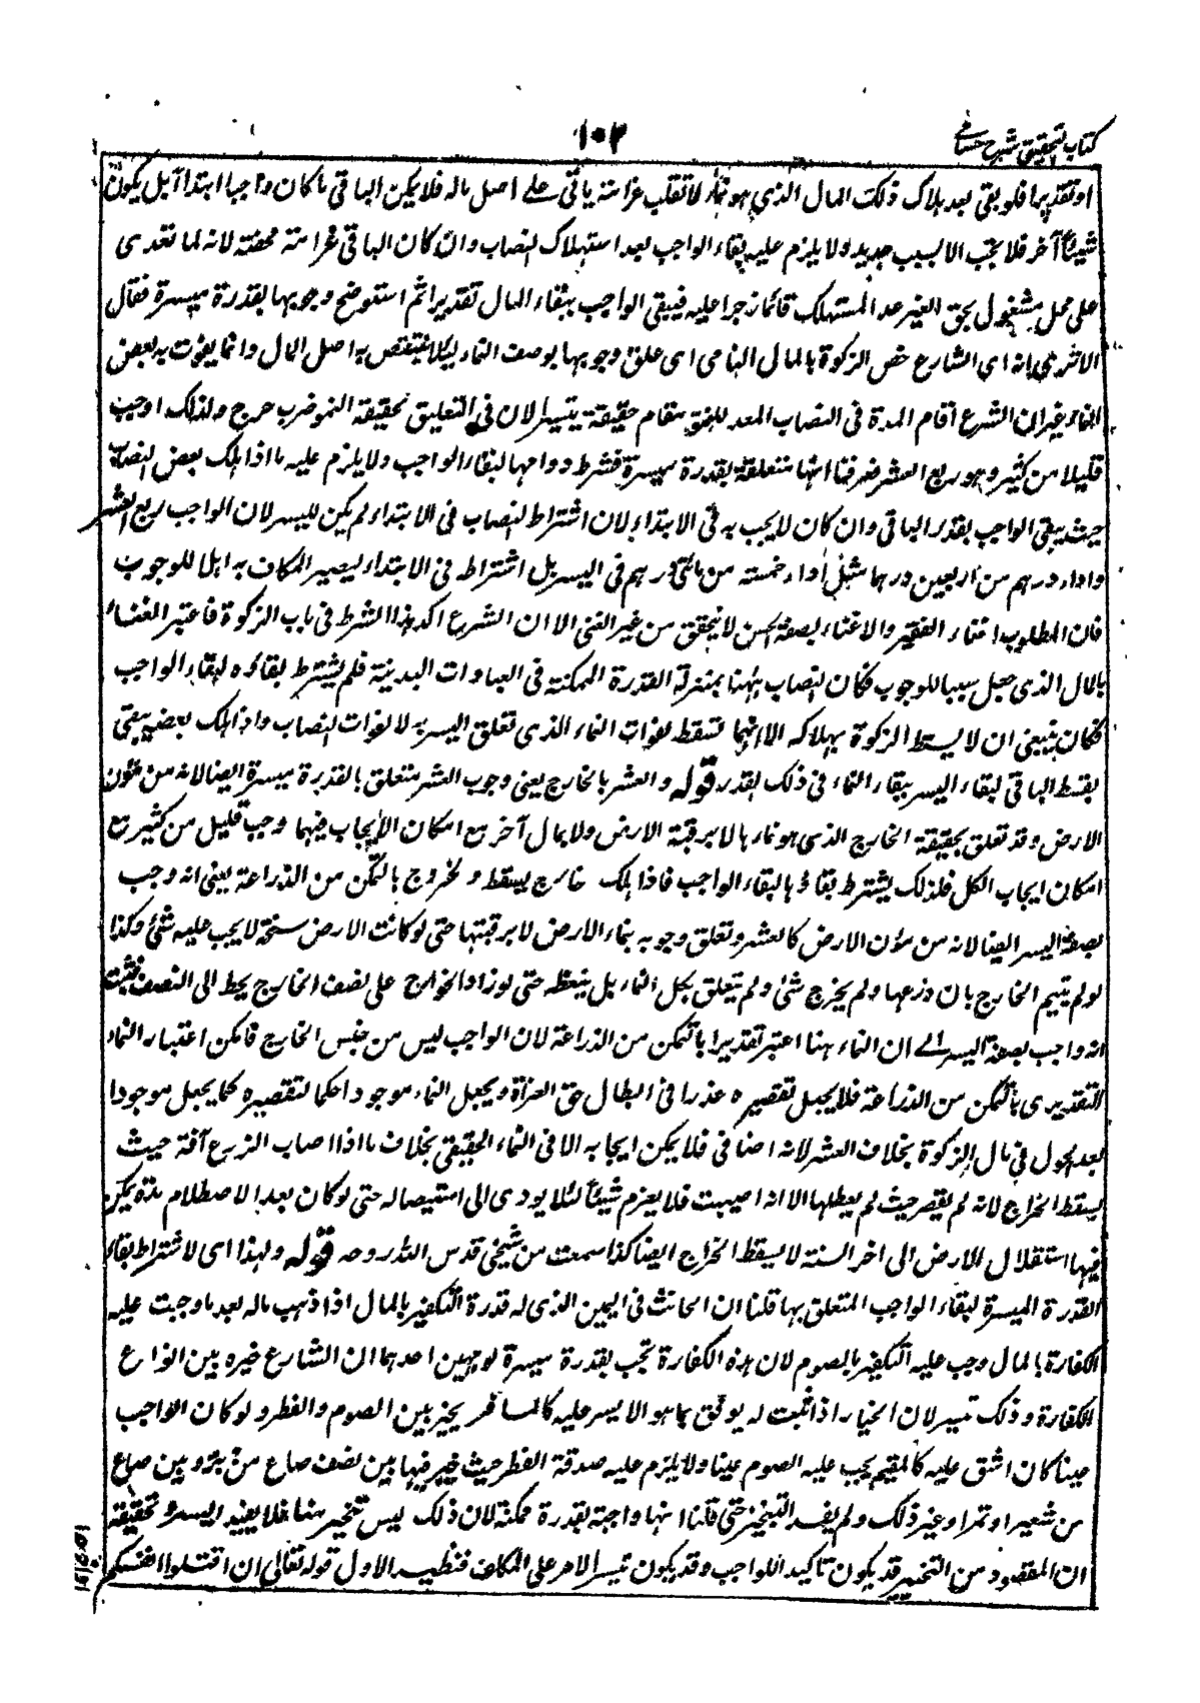 كتاب التحقيق شرح حسامي
١٠٣
او تقديرا فلو بقي بعد هلاك ذلك المال الذي هو نماء لانقلب غرامة يأتي على اصل ماله فلا يكن الباقي ما كان واجبا ابتداء بل يكون
شيئا آخر فلا يجب الا بسبب جديد ولا يلزم عليه بقاء الواجب بعد استهلاك النصاب وان كان الباقي غرامة محضة لانه لما تعدى
على محل مشغول بحق الغير عد المستهلك قائما زجرا عليه فيبقى الواجب ببقاء المال تقديرا ثم استوضح وجوبها بقدرة ميسرة فقال
الا ترى انه اي الشارع خص الزكوة بالمال النامي اى علق وجوبها بوصف النماء ليلا ينتقص به اصل المال وانما يفوت به بعض
النماء غير ان الشرع اقام المدة فى النصاب المعد للنمو مقام حقيقة تيسيرا لان فى التعليق بحقيقة النمو ضرب حرج ولذلك اوجب
قليلا من كثير وهو ربع العشر فعرفنا انها متعلقة بقدرة ميسرة فشرط دوامها لبقاء الواجب ولا يلزم عليه ما اذا هلك بعض النصاب
حيث يبقى الواجب بقدر الباقي وان كان لا يجب به في الابتداء لان اشتراط النصاب فى الابتداء لم يكن لليسر لان الواجب ربع العشر
واداء درهم من اربعين درهما مثل أداء خمسة من مائتى درهم فى اليسر بل اشتراطه فى الابتداء ليصير المكلف به اهلا للوجوب
فان المطلوب اغناء الفقير والاغناء بصفة الحسن لا يتحقق من غير الغنى الا ان الشرع اكد هذا الشرط فى باب الزكوة فاعتبر الغناء
بالمال الذى جعل سببا للوجوب فكان النصاب ههنا بمنزلة القدرة الممكنة فى العبادات البدنية فلم يشترط بقاؤه لبقاء الواجب
فكان ينبغى ان لا يسقط الزكوة بهلاكه الا انها تسقط لفوات النماء الذى تعلق اليسر به لا لفوات النصاب واذا هلك بعضه يبقى
بقسط الباقي لبقاء اليسر ببقاء النماء فى ذلك القدر قوله والعشر بالخارج يعنى وجوب العشر متعلق بالقدرة ميسرة ايضا لانه من مؤن
الارض وقد تعلق بحقيقة الخارج الذى هو نماءها لا برقبة الارض ولا بمال آخر مع امكان الايجاب فيهما وجب قليل من كثير مع
امكان ايجاب الكل فلذلك يشترط بقاؤها لبقاء الواجب فاذا هلك خارج يسقط والخروج بالتمكن من الزراعة يعنى انه وجب
بصفة اليسر ايضا لانه من مؤن الارض كالعشر وتعلق وجوبه بنماء الارض لا برقبتها حتى لو كانت الارض سبخة لا يجب عليه شئ وكذا
لو لم يتم الخارج بان زرعها ولم يخرج شئ ولم يتعلق بكل النماء بل ببعضه حتى لو زاد الخراج على نصف الخارج يحط الى النصف فثبت
انه واجب بصفة اليسر الا ان النماء هنا اعتبر تقديرا بالتمكن من الزراعة لان الواجب ليس من جنس الخارج فامكن اعتبار النماء
التقديرى بالتمكن من الزراعة فلا يجعل تقصيره عذرا فى ابطال حق الغزاة ويجعل النماء موجودا حكما لتقصيره كما يجعل موجودا
بعد الحول في مال الزكوة بخلاف العشر لانه اضافى فلا يمكن ايجابه الا فى النماء الحقيقى بخلاف ما اذا اصاب الزرع آفة حيث
يسقط الخراج لانه لم يقصر حيث لم يعطلها الا انه اصيبت فلا يغرم شيئا لئلا يودى الى استيصاله حتى لو كان بعد الاصطلام مدة يمكن
فيها استغلال الارض الى اخر السنة لا يسقط الخراج ايضا كذا سمعت من شيخى قدس الله روحه قوله ولهذا اى لاشتراط بقاء
القدرة الميسرة لبقاء الواجب المتعلق بها قلنا ان الحانث فى اليمين الذى له قدرة التكفير بالمال اذا ذهب ماله بعد ما وجبت عليه
الكفارة بالمال وجب عليه التكفير بالصوم لان هذه الكفارة تجب بقدرة ميسرة لوجهين احدهما ان الشارع خيره بين انواع
الكفارة وذلك تيسير لان الخيار اذا ثبت له يوفق بما هو الايسر عليه كالمسافر يخير بين الصوم والفطر ولو كان الواجب
عينا كان اشق عليه كالمقيم يجب عليه الصوم عينا ولا يلزم عليه صدقة الفطر حيث خير فيها بين نصف صاع من بر وبين صاع
من شعير او تمر او غير ذلك ولم يفد التخيير حتى قلنا انها واجبة بقدرة ممكنة لان ذلك ليس تخيير معنا فلا يفيد اليسر وتحقيقه
ان المقصود من التخيير قد يكون تاكيدا للواجب وقد يكون تيسيرا للامر على المكلف فنظير الاول قوله تعالى ان اقتلوا انفسكم